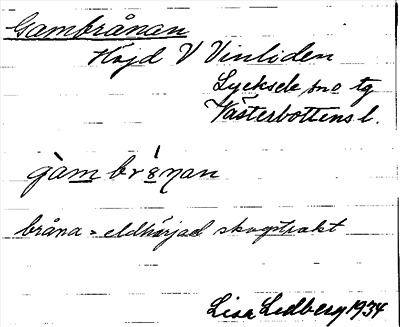 Gambrånan
Höjd V Vinliden
Lycksele sno tg
Västerbottens l.
gàm brånan
bråna = eldhärjad skogstrakt
Lisa Lidberg 1934